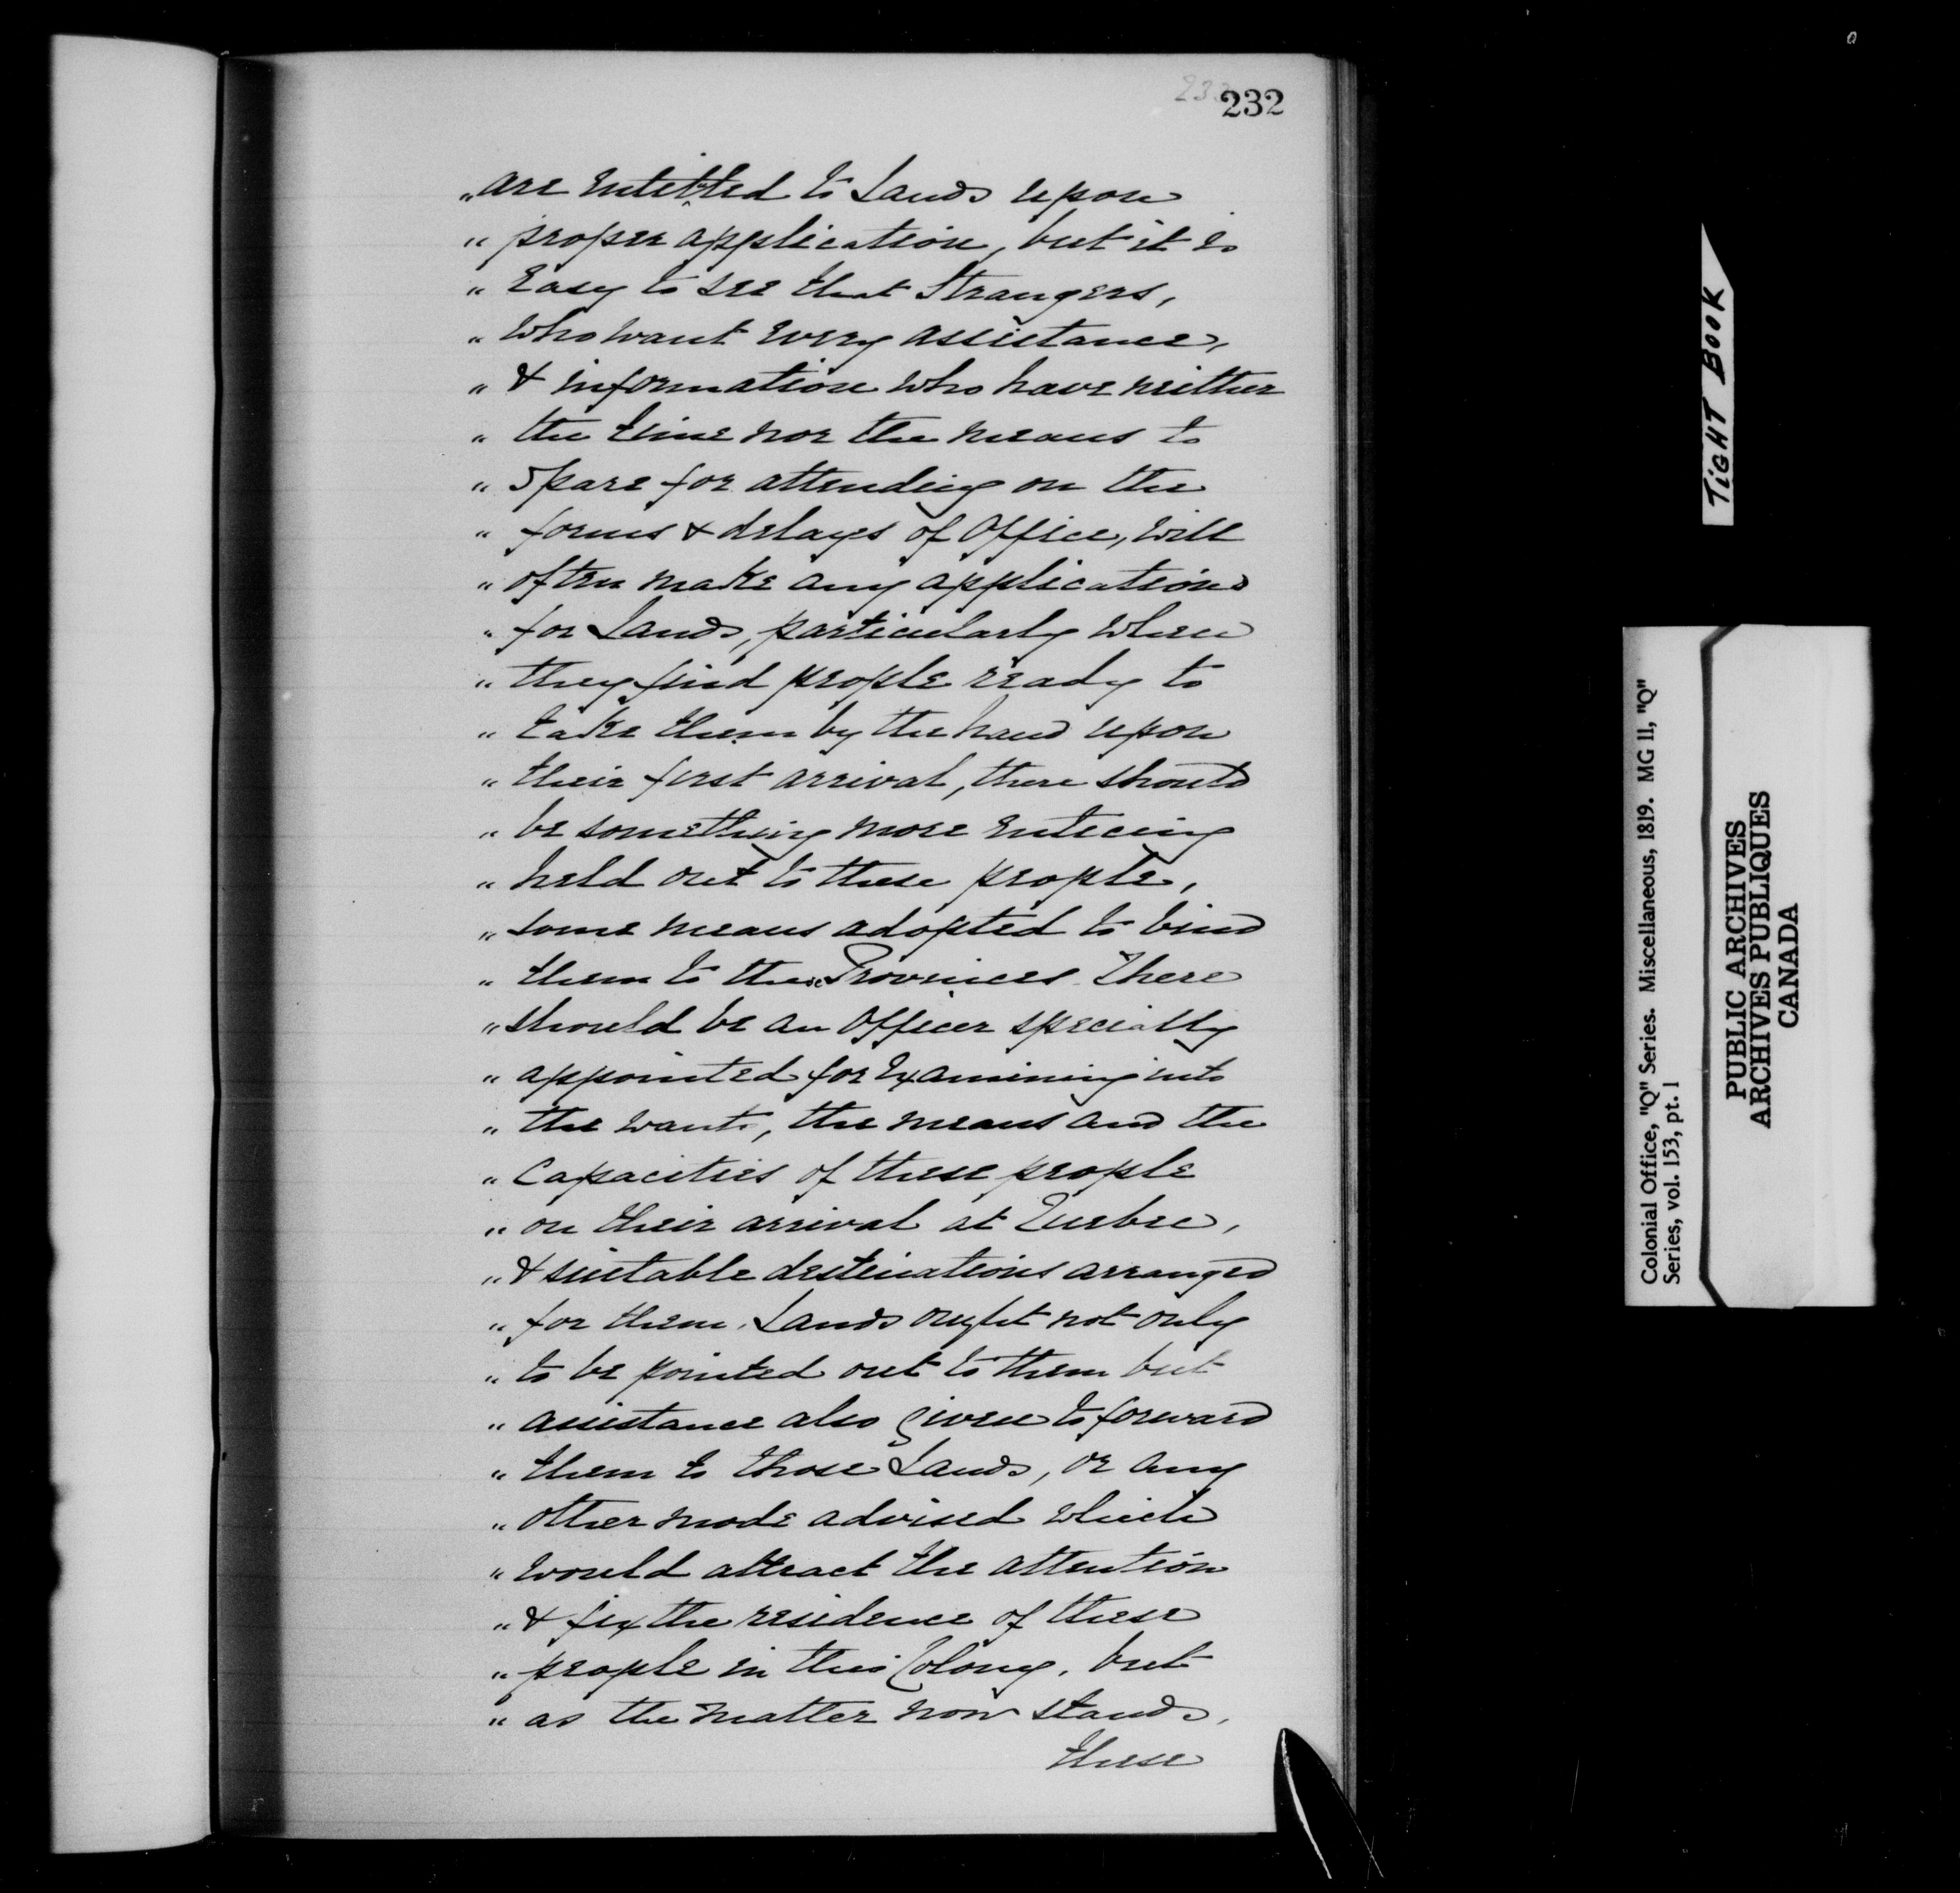 232
„are entitled to Lands upon
„ proper application, but it is
„ Easy to see that Strangers,
„ who want every assistance,
„ & information who have neither
„ the time nor the means to
„ Spare for attending on the
„ forms & delays of Office, will
„ often make any applications
„ for Lands, particularly when
„ they find people ready to
„ take them by the hand upon
„ their first arrival, there should
„ be something more enticing
„ held out to these people,
„ some means adopted to bind
„ them to these Provinces. There
„ should be an Officer specially
„ appointed for Examining into
„ the wants, the means and the
„ Capacities of these people
„ on their arrival at Quebec,
„ & suitable destinations arranged
„ for them. Lands ought not only
„ to be pointed out to them but
„ assistance also given to forward
„ them to those Lands, or any
„ other mode advised which
„ would attract the attention
„ & fix the residence of these
„ people in this Colony, but
„ as the matter now stands,
these
TIGHT BOOK
Colonial Office, "Q" Series. Miscellaneous, 1819. MG 11, "Q"
Series, vol. 153, pt. 1
PUBLIC ARCHIVES
ARCHIVES PUBLIQUES
CANADA